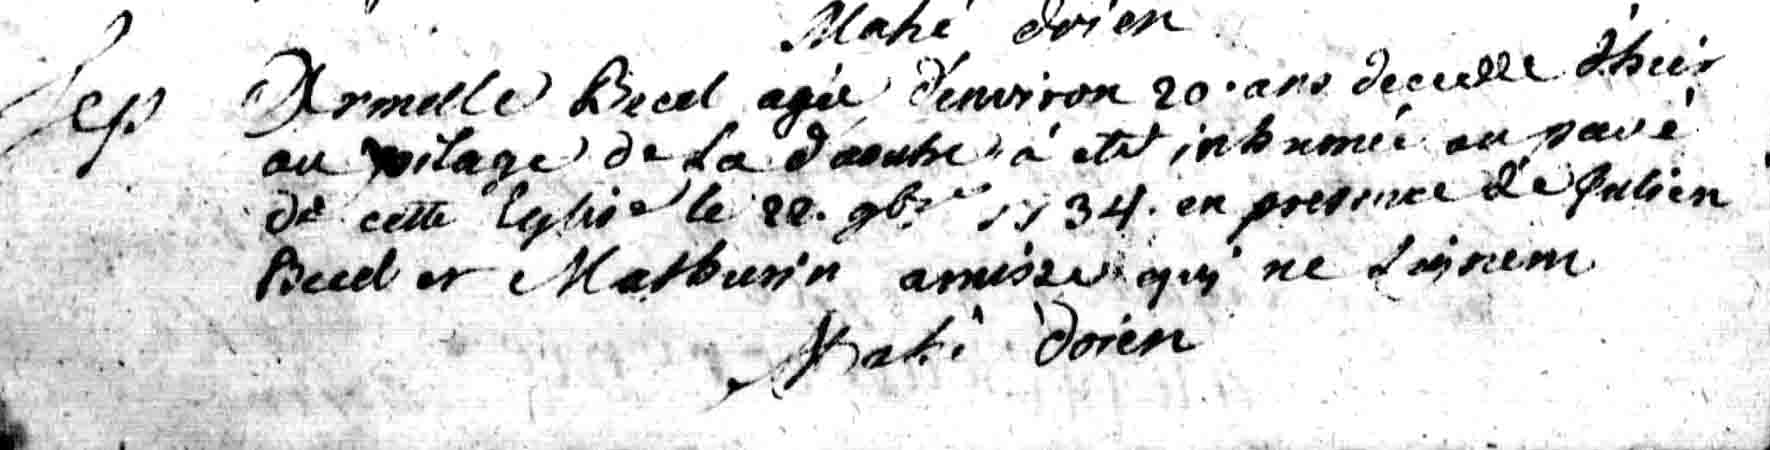 Mahé doien
Sep Armelle Becel agée d'environ 20. ans decedée d'hier
au vilage de La à eté inhumée au pavé
de cette Eglise le 22. 9bre 1734. en presence de Julien
Becel et Mathurin qui ne signent
Mahé doien